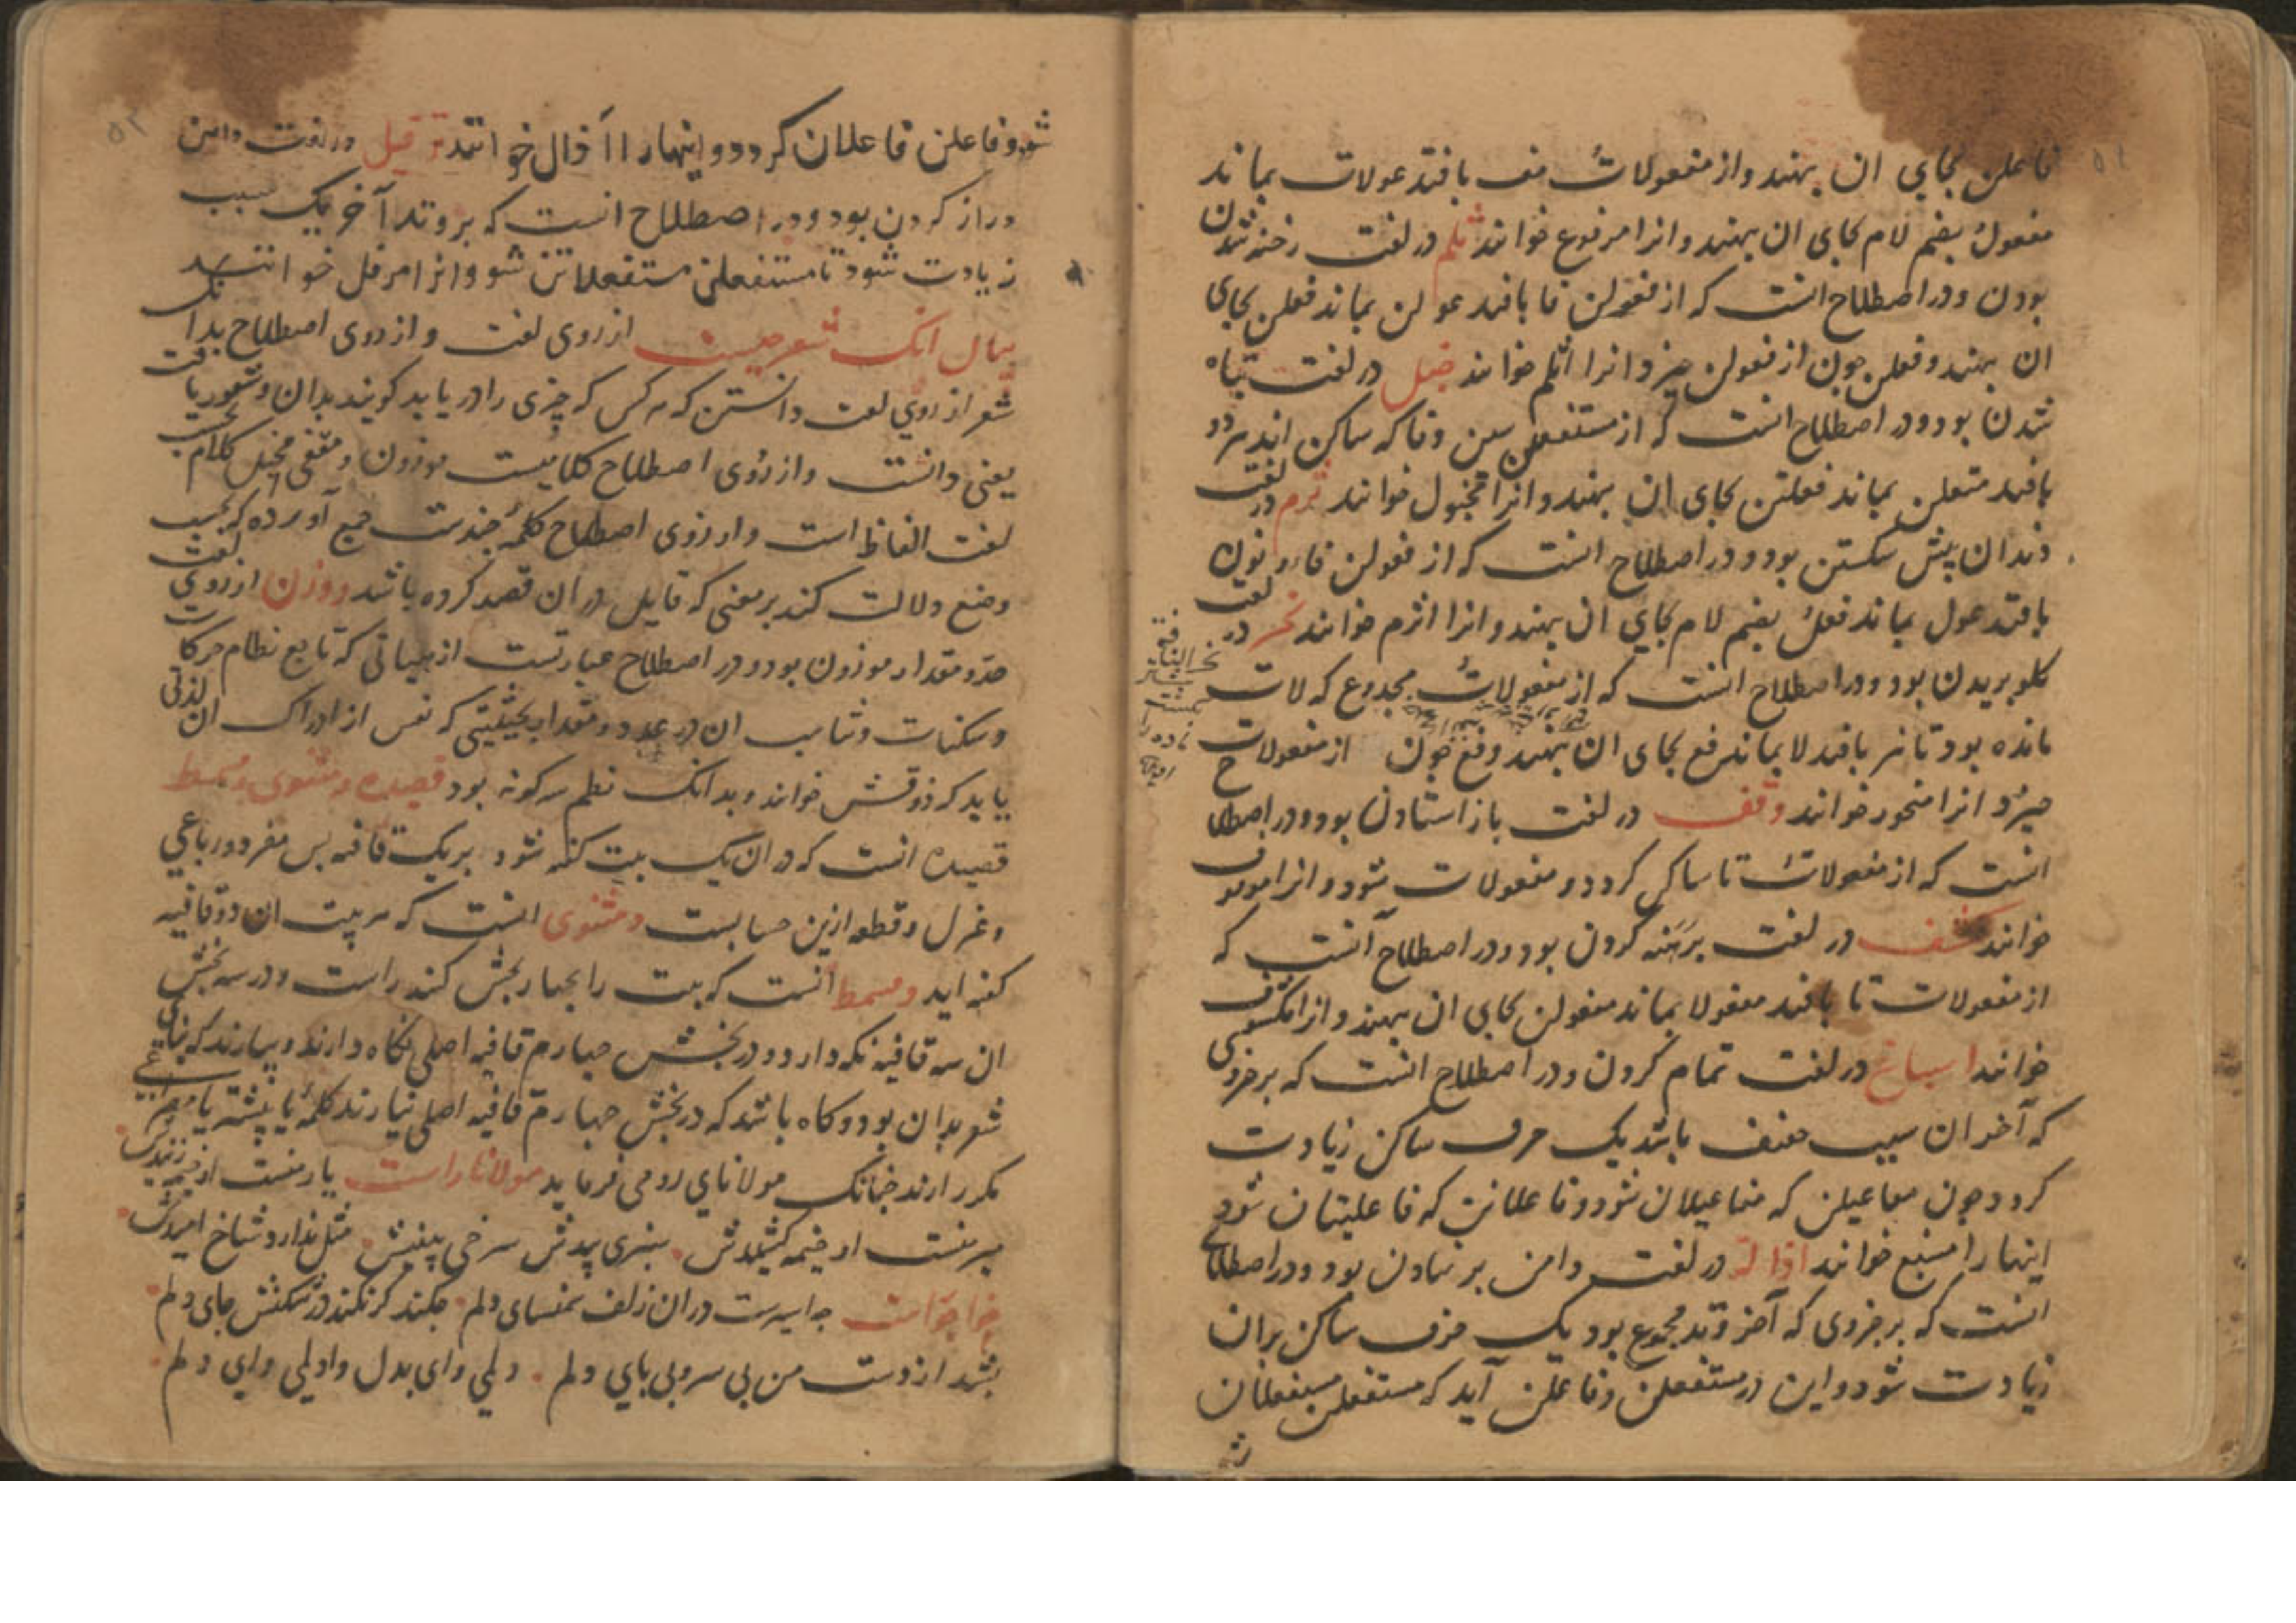 فاعلن بجای ان بهند و از مفعولات مف بافتد عولات بماند
مفعول بضم لام بجای ان بهند و انرا مرفوع خوانند ثلم در لغت رخنه شدن
بودن و در اصطلاح انست که از فعولن فا بافتد عولن بماند فعلن بجای
ان بهند و فعلن چون از فعولن خیزد انرا اثلم خوانند خبل در لغت تباه
شدن بود و در اصطلاح انست که از مستفعلن سین و فا که ساکن اند هر دو
بافتد متعلن بماند فعلتن بجای ان بهند و انرا مخبول خوانند ثرم در لغت
دندان پیش شکستن بود و در اصطلاح انست که از فعولن فا و نون
بافتد عول بماند فعل بضم لام بجای ان بهند و انرا اثرم خوانند نحر در لغت
کلو بریدن بود و در اصطلاح انست که از مفعولات مجدوع که لات
مانده بود تا نیز بافتد لا بماند فع بجای ان بهند و فع چون از مفعولات
خیزد انرا منحور خوانند وقف در لغت باز استادن بود و در اصطلاح
انست که از مفعولات تا ساکن کردد و مفعولات شود و انرا موقوف
خوانند کشف در لغت برهنه کردن بود و در اصطلاح آنست که
از مفعولات تا بافتد مفعولا بماند مفعولن بجای ان بهند و انرا مکشوف
خوانند اسباغ در لغت تمام کردن و در اصطلاح انست که بر جزوی
که آخر ان سبب خفیف باشد یک حرف ساکن زیادت
کردد چون مفاعیلن که مفاعیلان شود و فاعلاتن که فاعلیتان شود
اینها را مسبغ خوانند اذاله در لغت دامن بر نهادن بود و در اصطلاح
انست که بر جزوی که آخر وتد مجموع بود یک حرف ساکن بران
زیادت شود و این در مستفعلن و فاعلن آید که مستفعلن مستفعلان
شود و فاعلن فاعلان کردد و اینها را اذال خوانند ترفیل در لغت دامن
دراز کردن بود و در اصطلاح انست که بر وتد آخر یک سبب
زیادت شود تا مستفعلن مستفعلاتن شود و انرا مرفل خوانند
بیان انک شعر چیست از روی لغت و از روی اصطلاح بدانک
شعر از روی لغت دانستن که هر کس که چیزی را دریابد کویند بدان و شعور یافت
یعنی دانست و از روی اصطلاح کلامیست موزون و مقفی مخیل کلام بحسب
لغت الفاظ است و از روی اصطلاح کلمه چندست جمع آورده که بحسب
وضع دلالت کند بر معنی که قایل در ان قصد کرده باشد و وزن از روی لغت
حد و مقدار موزون بود و در اصطلاح عبارتست از هیاتی که تابع نظام حرکات
و سکنات و تناسب ان در عدد و مقدار بحیثیتی که نفس از ادراک ان لذتی
یابد که ذوقش خوانند و بدانک نظم سه کونه بود قصیده و مثنوی و مسمط
قصیده انست که در ان یک بیت کفته شود بر یک قافیه بس مفرد و رباعی
و غزل و قطعه ازین حسابست و مثنوی انست که هر بیت ان دو قافیه
کفته اید و مسمط انست که بیت را بجهار بخش کند راست و در سه بخش
ان سه قافیه نکه دارد و در بخش جهارم قافیه اصلی نکاه دارند و بیارند که بنای
شعر بدان بود و کاه باشد که در بخش جهارم قافیه اصلی نیارند کلمه یا بیشتر یا مصراعی
مکرر ارند جنانک مولانای رومی فرماید مولانا راست
پدش سرخی شاخ امیدش
خواجو راست دران زلف سمنسای دلم جکند کر نکند در شکنش جای دلم
بشد از دست من بی سر و بی بای دلم دلی وای بدل وا دلی وای دلم